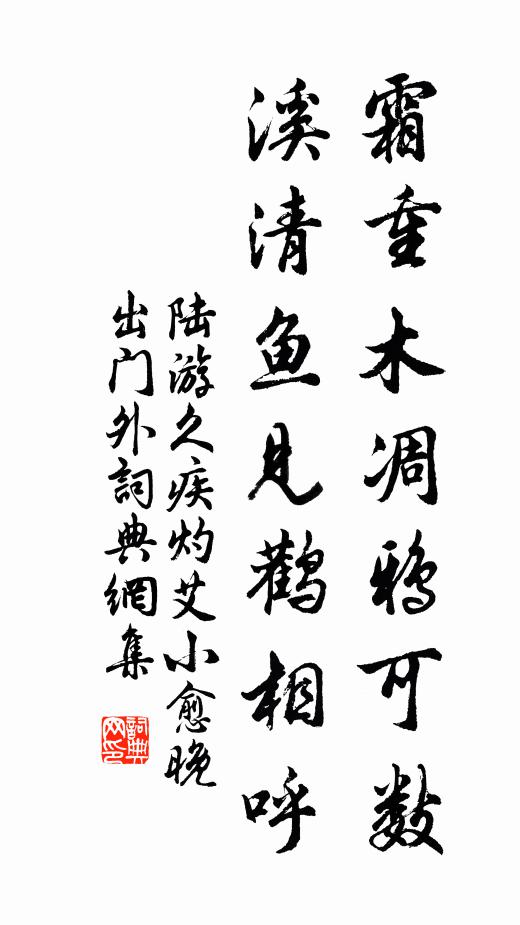 霜重木凋鸦可数
溪清鱼见鹳相呼
陆游久疾灼艾小愈晚
出门外詞典網集
詞典
网印